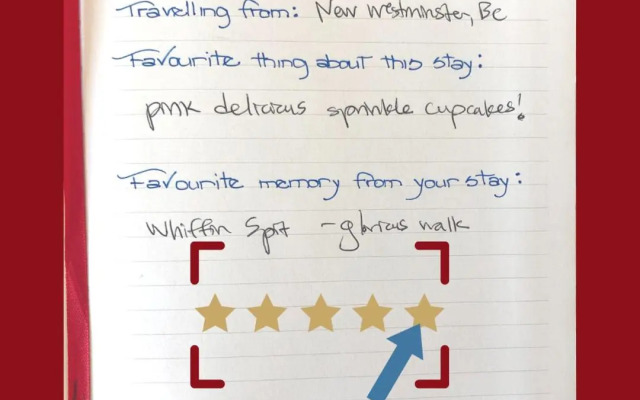 Travelling from: New Westminster, BC
Favourite thing about this stay:
pink delicious sprinkle cupcakes!
Favourite memory from your stay:
Whiffin Spit - glorious walk